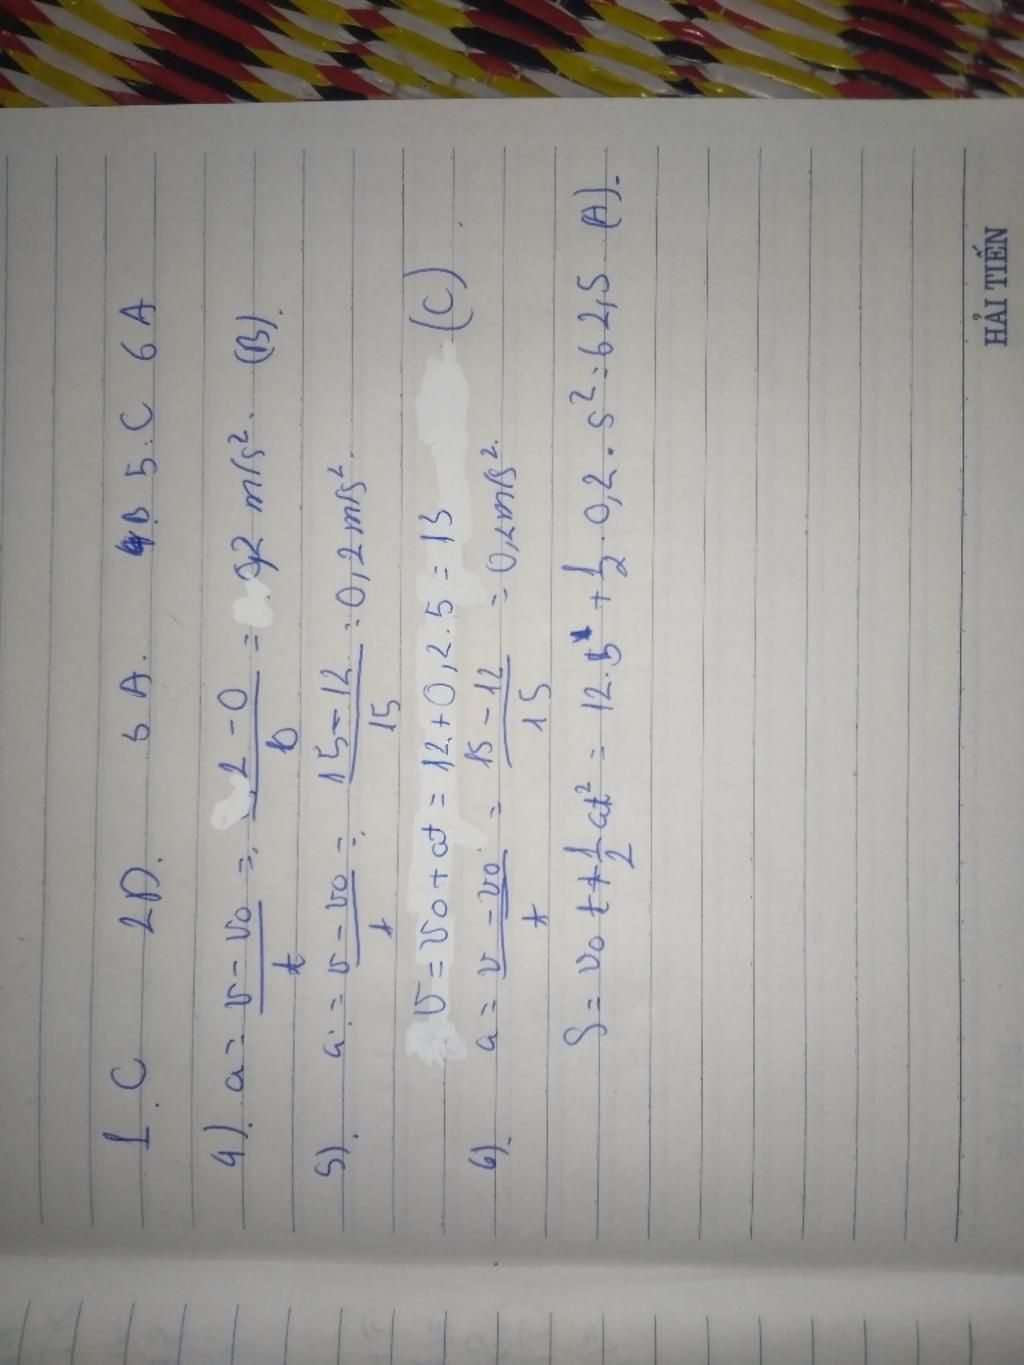 1. C 2D. 3 A. 4B 5: C 6 A
4). a = v - v0 / t = 2 - 0 / 10 = 0,2 m/s². (B).
5). a = v - v0 / t = 15 - 12 / 15 = 0,2 m/s².
v = v0 + at = 12 + 0,2 . 5 = 13 (C)
6) a = v - v0 / t = 15 - 12 / 15 = 0,2 m/s².
S = v0 t + 1/2 at² = 12 . 5 + 1/2 . 0,2 . 5² = 62,5 (A).
HẢI TIẾN